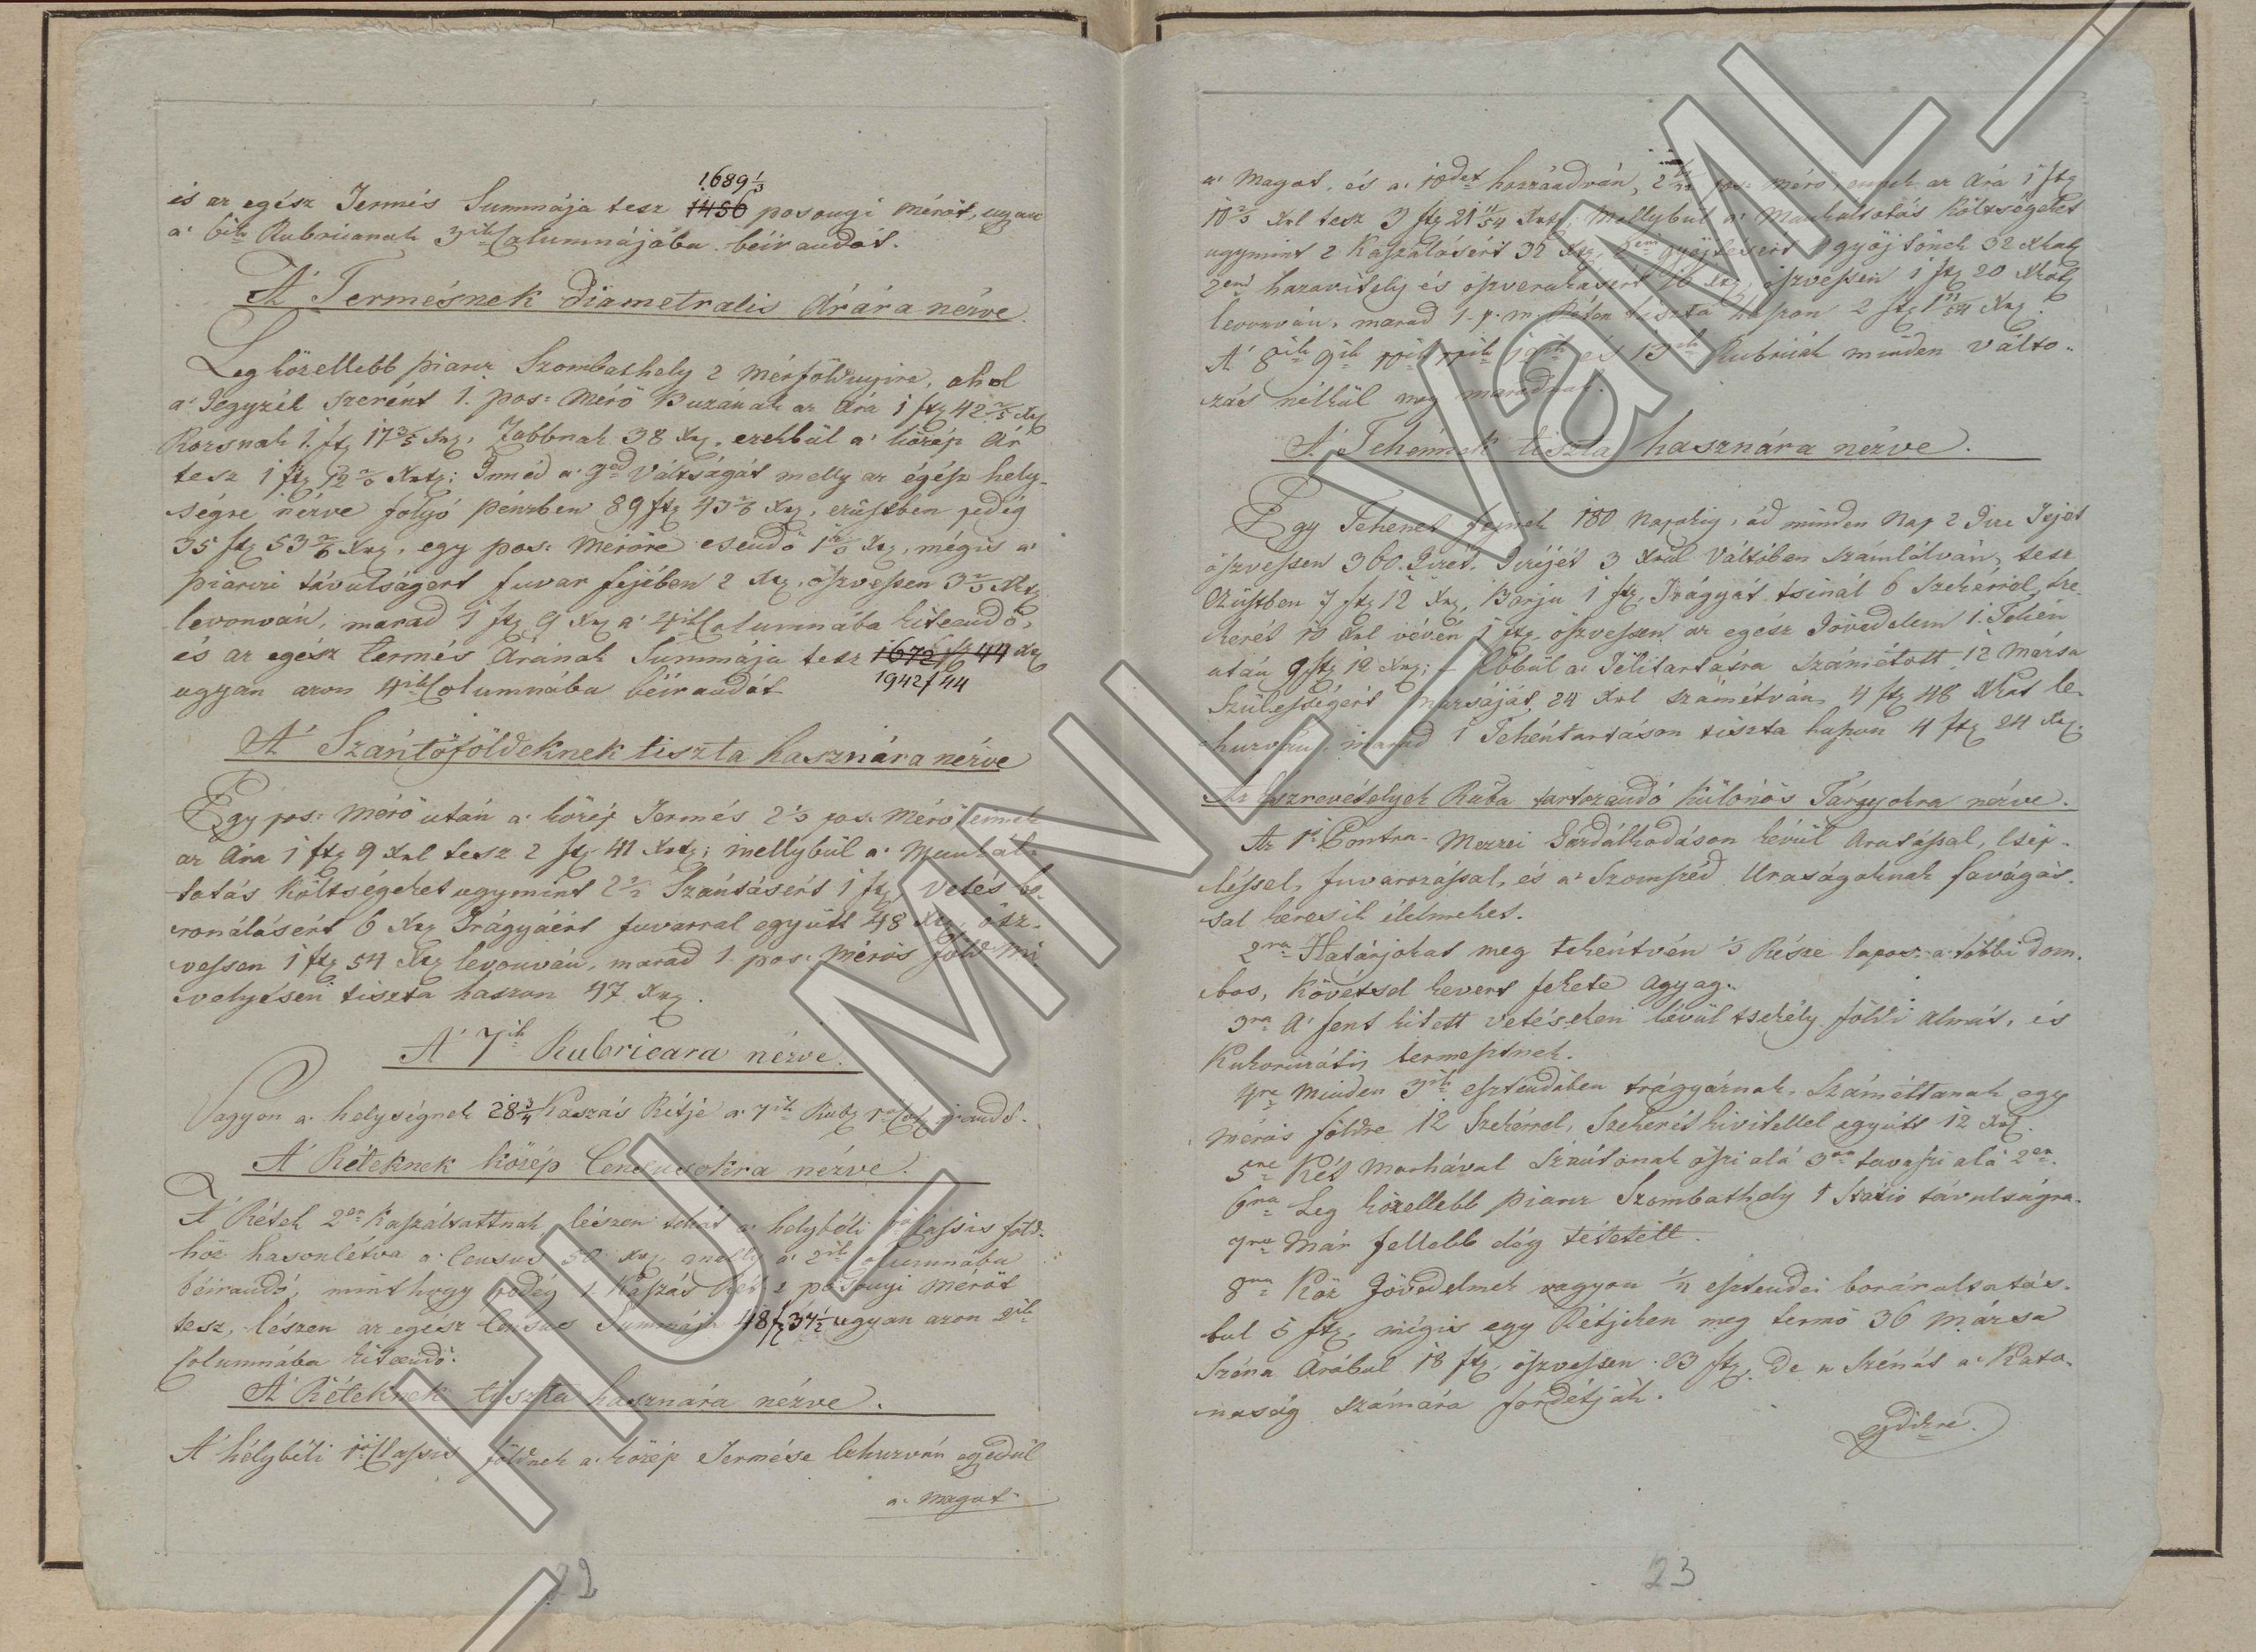 1689 1/3
és az egész Termés Summája tesz 1456 posonyi mérőt, ugyan
a' 6ik Rubricanak 3ik Columnájába béirandót.
A' Termésnek diametralis Árára nézve
Leg közellebb piarcz Szombathely 2 mérföldnyire, ahol
a' Jegyzék szerént 1. pos: mérő Buzanak az Ára 1 ftz 42 2/5 Xrz
Rozsnak 1. ftz 17 3/5 Xrz, Zabbnak 38 Xrz, ezekbül a' közép Ár
tesz 1 ftz 12 Xrtz; Innéd a' 9ed Váltságát melly az égész hely-
ségre nézve folyó pénzben 89 ftz 43 Xrz, ezüstben pedig
35 ftz 53 Xrz, egy pos: mérőre esendő Xrz, mégis a'
piarczi távulságert fuvar fejében 2 Xrz, öszvessen 3 Xrtz
levonván, marad 1 ftz 9 Xrz a' 4ik Columnába kiteendő,
és az egész termés Árának Summája tesz 1672 ftz 44 Xrz
ugyan azon 4ik Columnába béirandót 1942 f 44
A' Szántóföldeknek tiszta hasznára nézve
Egy pos: mérő után a' közép Termés 2 1/3 pos: mérő ennek
az Ára 1 ftz 9 Xrl tesz 2 ftz 41 Xrtz; mellybül a' Munkál-
tatás Költségeket ugymint 2 1/2 Szántásért 1 ftz, Vetés bo-
ronálásért 6 Xrz Trágyáért fuvarral együtt 48 Xrz, ösz-
vessen 1 ftz 54 Xrz levonván, marad 1 pos: mérős föld mi-
velyésen tiszta haszon 47 Xrz.
A' 7ik Rubricara nézve.
Vagyon a' helységnek 28 3/4 Kaszás Rétje a' 7ik Rubr
A' Réteknek közép Censusokra nézve.
A' Rétek 2er Kaszáltattnak, lészen tehát a' helybéli Classis föld-
höz hasonlétva a' Census 50 Xrz melly a' 2ik Columnába
béirandó, mint hogy pedég 1 Kaszás Rét 2 posonyi mérőt
tesz, lészen az egész Census Summája 48 f 34 1/2 ugyan azon 2ik
Columnába kiteendő.
A' Réteknek tiszta hasznára nézve.
A' hélybéli 1ő Classis földnek a' közép Termése lehuzván egyedül
a' magot
22
a' Magot, és a' 10det hozzáadván, 2 pos: mérő, ennek az Ára 1 ftz
10 2/3 Xrl tesz 3 ftz 21 11/54 Xrtz, mellybül a' Munkaltatás Költségeket
ugymint 2 Kaszálásért 32 Xrz, gyöjtésért 4 gyöjtőnek 32 Xkat
hazavitely és öszverakásért 16 Xrz, öszvessen 1 ftz 20 Xkat
levonván, marad 1 p. m. Réten tiszta haszon 2 ftz 1 11/54 Xrz.
A' 8ik 9ik 10ik 11ik 12ik és 13ik Rubricák minden válto-
zás nélkül meg maradnak.
A' Tehénnek tiszta hasznára nézve.
Egy Tehenet fejnek 180 napokig, ád minden Nap 2 Icze Tejet
öszvessen 360. Iczét. Iczéjét 3 Xrval Váltóben számlálván, tesz
ezüstben 7 ftz 12 Xrz, Borju 1 ftz, Trágyát tsinál 6 Szekérrel, sze-
kerét 10 Xrl vévén 1 ftz, öszvessen az egész Jövedelem 1. Tehén
után 9 ftz 12 Xrz; Ebbül a' Télitartásra számétott 12 Mársa
Szülességért mársáját 24 Xrl számétván 4 ftz 48 Xkat le-
huzván, marad 1 Tehéntartáson tiszta haszon 4 ftz 24 Xrz.
Az Észrevételyek Rubr tartozandó különös Tárgyokra nézve.
Az 1ő Contra- Mezzei Gazdálkodáson kévül Aratással, Csép-
léssel, fuvarozással, és a' szomszéd Uraságoknak favágás-
sal keresik élelmeket.
2ra Határjokat meg tekéntvén 1/3 Része lapos: a' többi dom-
bos, kövétsel kevert fekete agyag.
3ra A' fent kitett vetéseken kévül tsekély földi almát, és
Kukoriczátis termesztnek.
4re Minden 3ik esztendőben trágyáznak, Száméttanak egy
mérős földre 12 Szekérrel, Szekerét kivitellel együtt 12 Xrz.
5re Két Marhával Szántanak öszi alá 3or tavaszi alá 2er.
6ra Leg közellebb piarcz Szombathely 1 Statio távulságra.
7re Már fellebb elég tétetett.
8ra Köz Jövedelmek vagyon 1/4 esztendei boráraltatás-
bul 5 ftz, mégis egy Rétjeken meg termő 36 Mársa
Széna Árábul 18 ftz, öszvessen 23 ftz, De a' Szénát a' Kato-
naság számára fordétják.
23